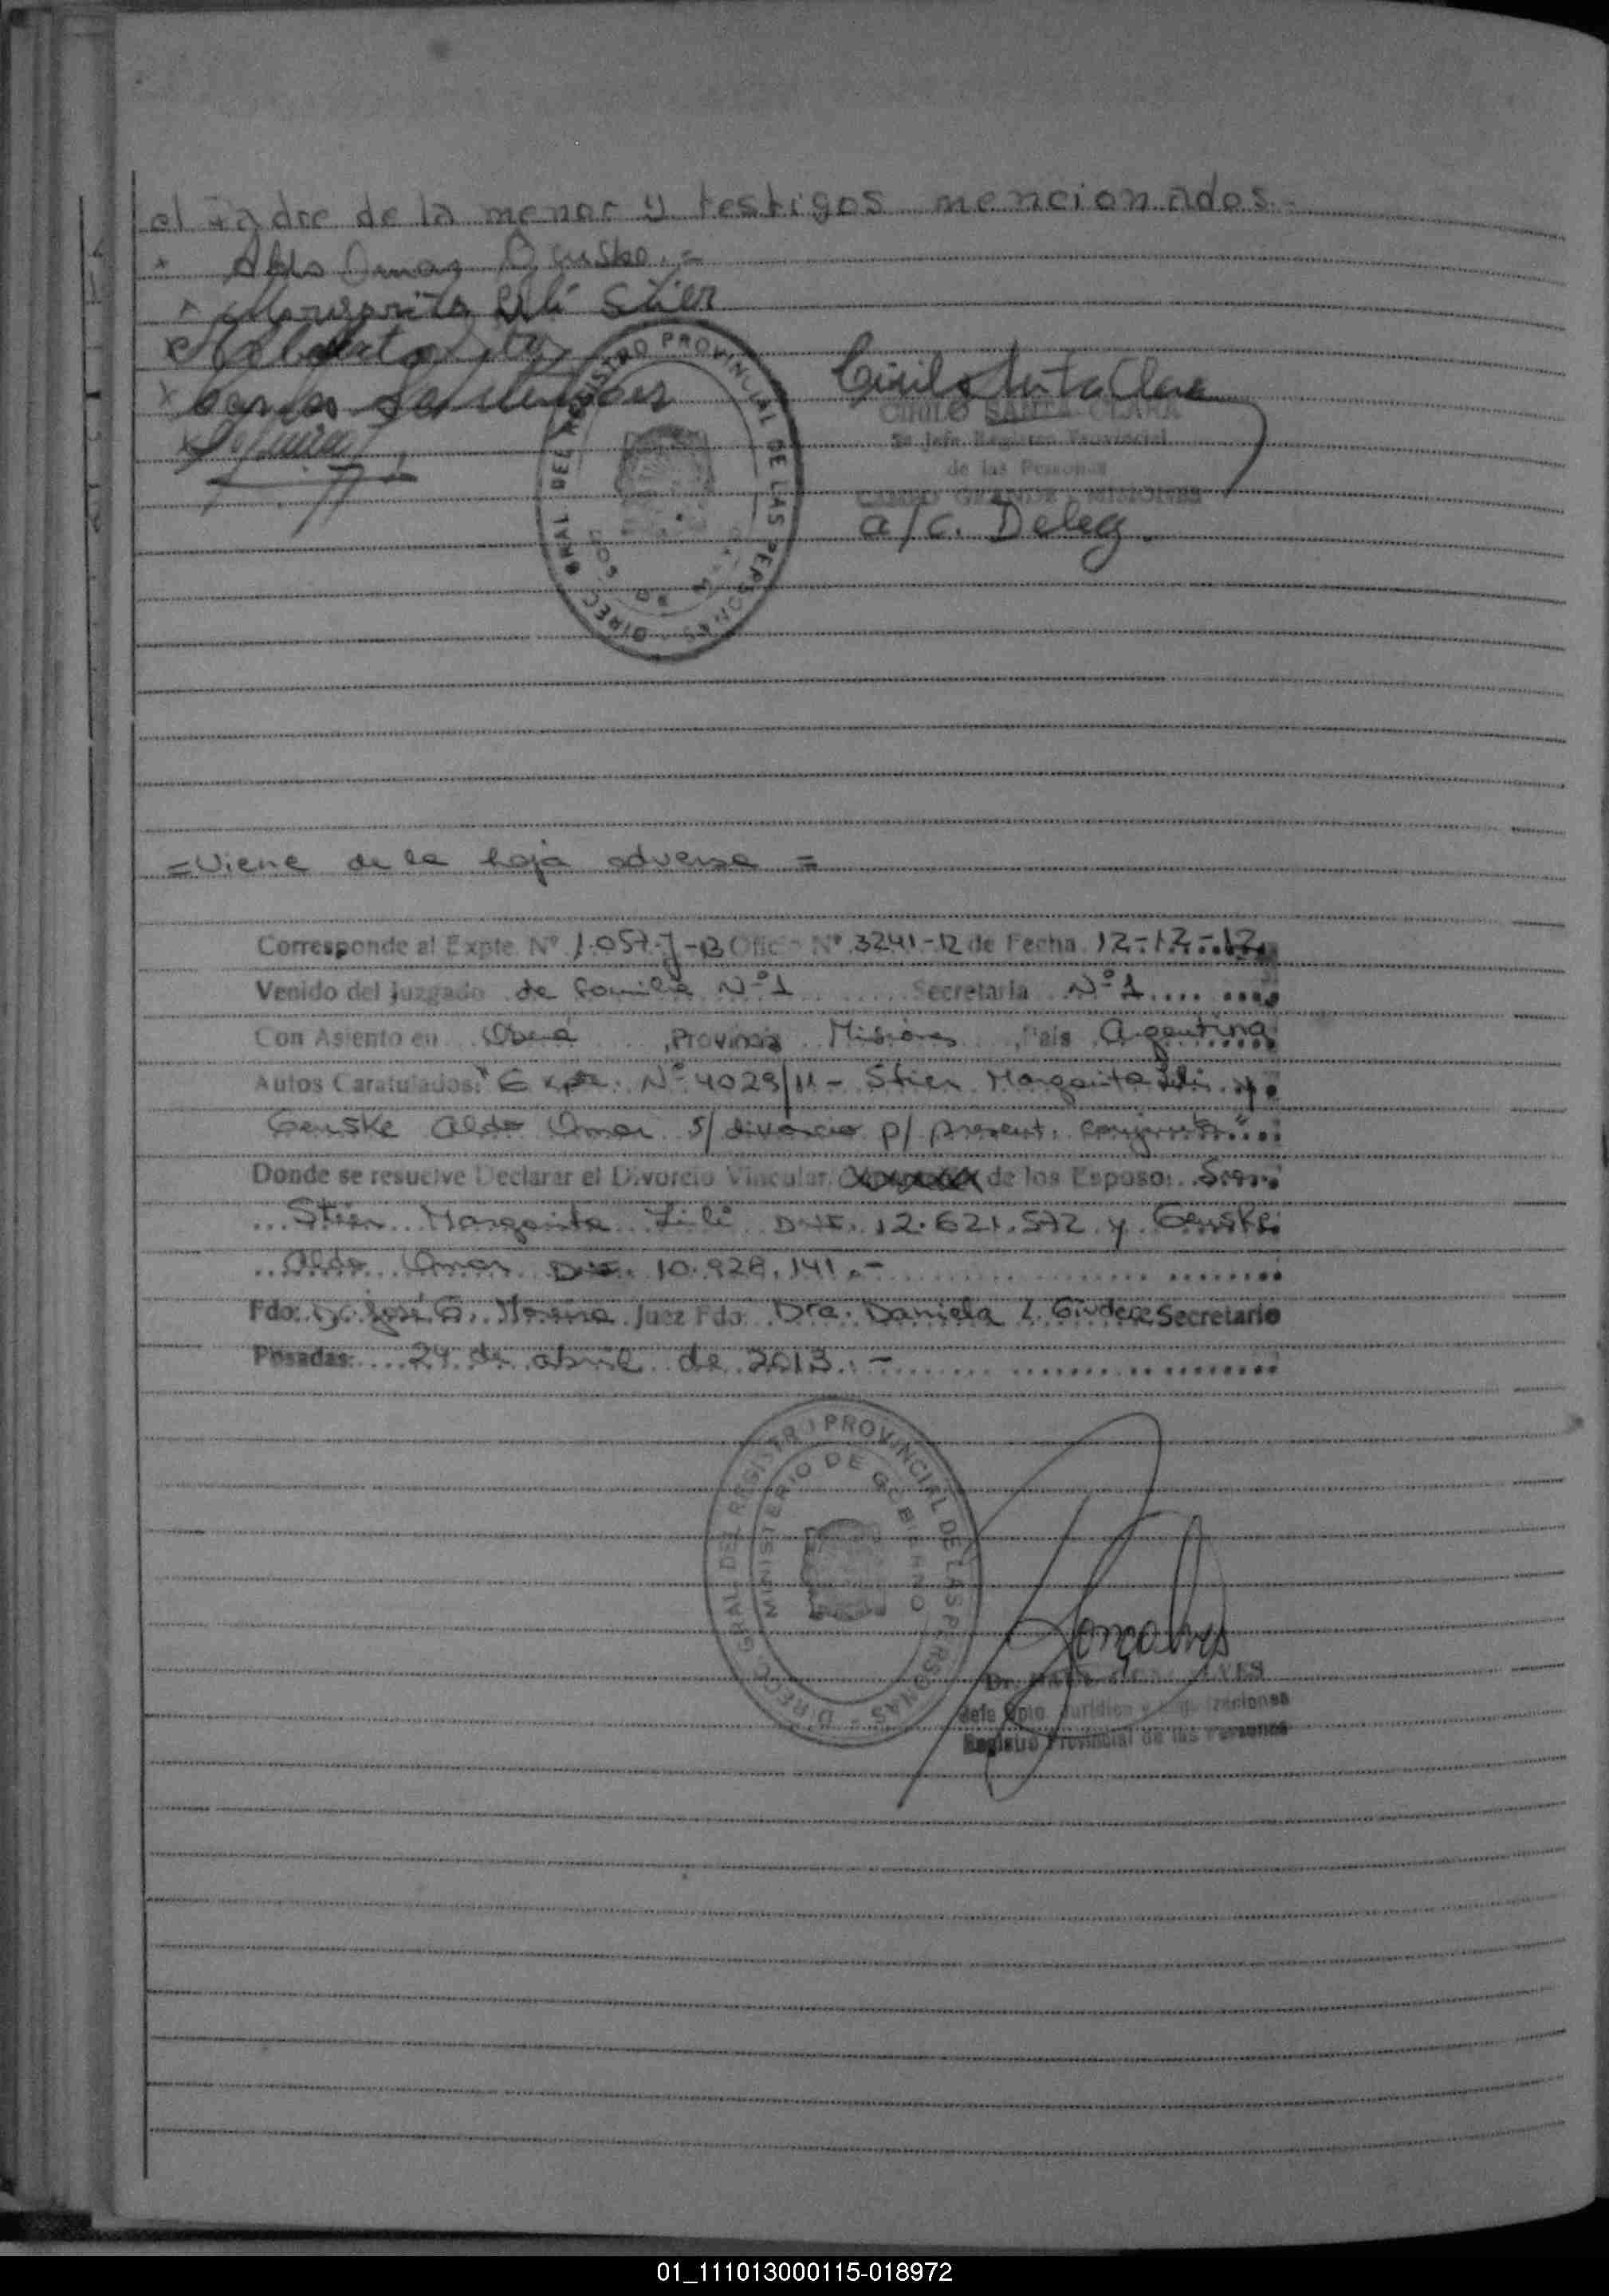 el Padre de la menor y testigos mencionados.-
Aldo Omar Genske.=
Margarita Lili Stier
Cirilo Santa Clara
CIRILO SANTA CLARA
Jefe Registro Provincial
de las Personas
CAMPO GRANDE - MISIONES
a/c. Deleg.
DIRECC. GRAL DEL REGISTRO PROVINCIAL DE LAS PERSONAS
=Viene de la hoja adversa =
Corresponde al Expte. Nº 1.057-J-13 Oficio Nº 3241-12 de Fecha 12-12-12
Venido del Juzgado de familia Nº 1 Secretaria Nº 1
Con Asiento en Oberá, Provincia Misiones, País Argentina
Autos Caratulados: "Expte. Nº 4029/11 - Stier Margarita Lili y
Genske Aldo Omar s/ divorcio p/ present. conjunta"
Donde se resuelve Declarar el Divorcio Vincular de los Esposos Sres.
Stier Margarita Lili DNI. 12.621.572 y Genske
Aldo Omar DNI. 10.928.141.-
Fdo: Dr. José G. Moreira Juez Fdo. Dra. Daniela I. Giudece Secretario
Posadas: 24 de abril de 2013.-
DIRECC. GRAL. DEL REGISTRO PROVINCIAL DE LAS PERSONAS
MINISTERIO DE GOBIERNO
Jefe Dpto. Jurídico y
Registro Provincial de las Personas
01_111013000115-018972